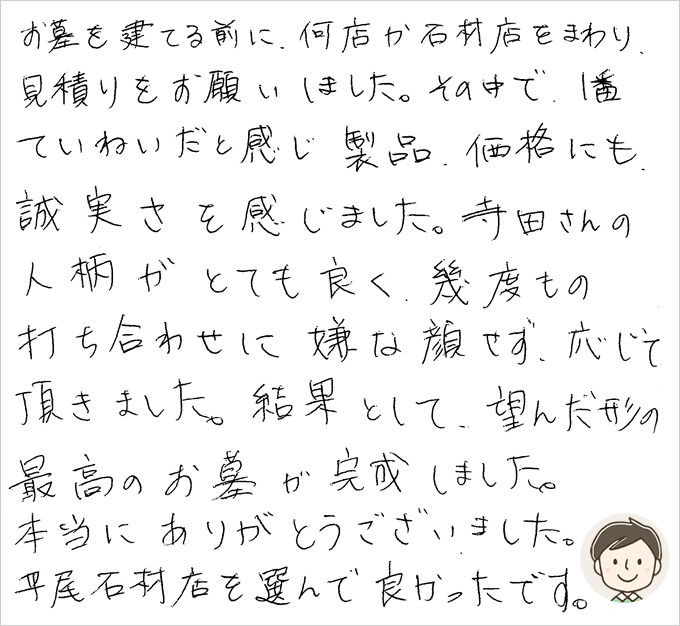 お墓を建てる前に、何店か石材店をまわり、
見積りをお願いしました。その中で、1番
ていねいだと感じ製品、価格にも、
誠実さを感じました。寺田さんの
人柄がとても良く、幾度もの
打ち合わせに嫌な顔せず、応じて
頂きました。結果として、望んだ形の
最高のお墓が完成しました。
本当にありがとうございました。
平尾石材店を選んで良かったです。